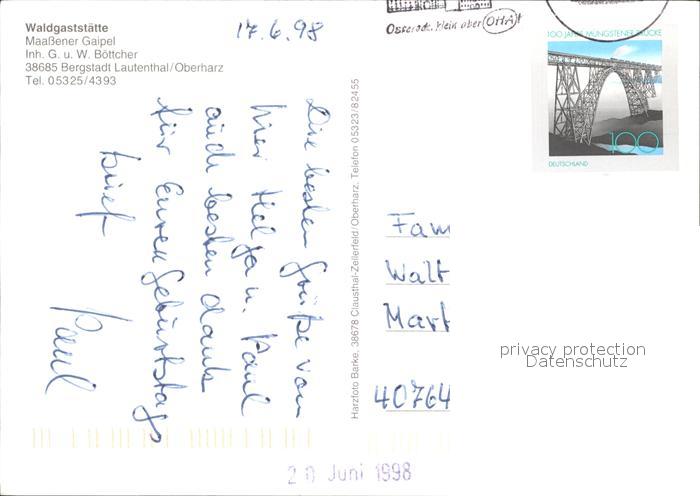 Waldgaststätte
Maaßener Gaipel
Inh. G. u. W. Böttcher
38685 Bergstadt Lautenthal/Oberharz
Tel. 05325/4393
17.6.98
Die besten Grüße von
hier Helga u. Paul
auch besten dank
für Euren Geburtstags
brief
Paul
Harzfoto Barke, 38678 Clausthal-Zellerfeld/Oberharz, Telefon 05323/82455
Osterode. klein aber OHA!
100 JAHRE MÜNGSTENER BRÜCKE
100
DEUTSCHLAND
Fam
Walt
Mart
40764
privacy protection
Datenschutz
20 Juni 1998